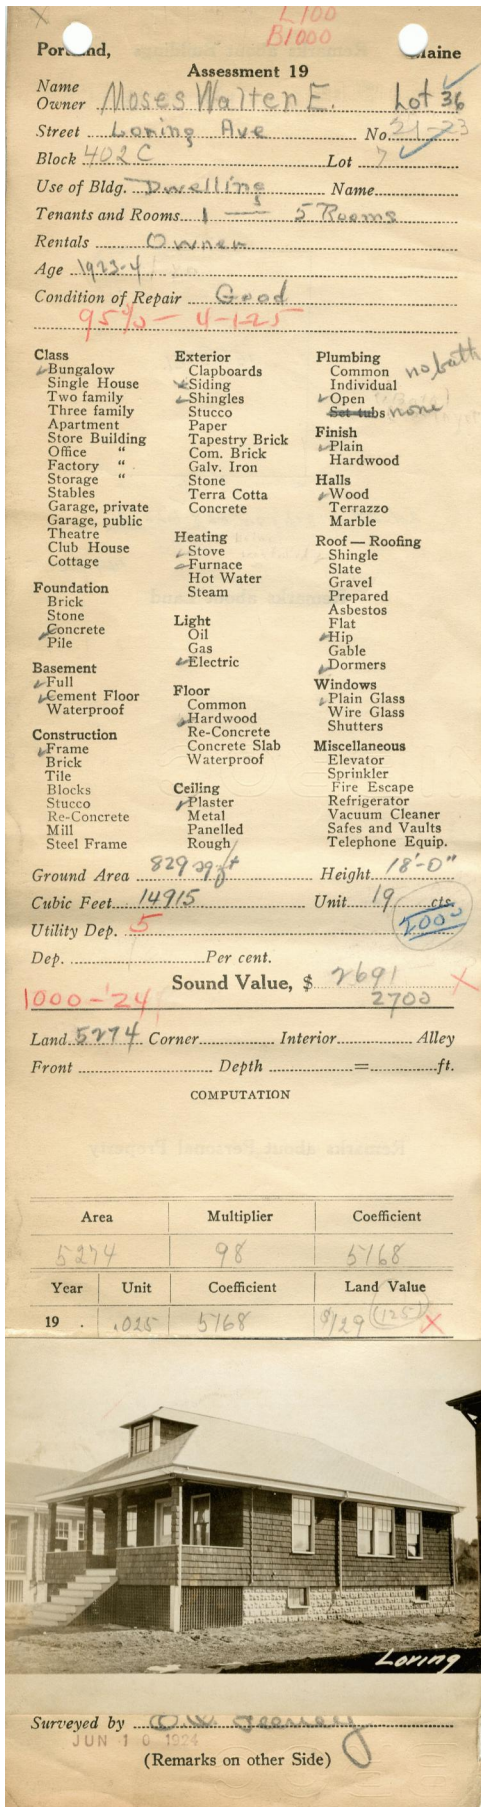 L100
B1000
Portland, Maine
Assessment 19
Name
Owner Moses Walter E. Lot 36
Street Loring Ave No. 21-23
Block 402C Lot 7
Use of Bldg. Dwelling Name
Tenants and Rooms 1 — 5 Rooms
Rentals Owner
Age 1923-4
Condition of Repair Good
95% - 4-125
Class
Bungalow
Single House
Two family
Three family
Apartment
Store Building
Office "
Factory "
Storage "
Stables
Garage, private
Garage, public
Theatre
Club House
Cottage
Foundation
Brick
Stone
Concrete
Pile
Basement
Full
Cement Floor
Waterproof
Construction
Frame
Brick
Tile
Blocks
Stucco
Re-Concrete
Mill
Steel Frame
Exterior
Clapboards
Siding
Shingles
Stucco
Paper
Tapestry Brick
Com. Brick
Galv. Iron
Stone
Terra Cotta
Concrete
Heating
Stove
Furnace
Hot Water
Steam
Light
Oil
Gas
Electric
Floor
Common
Hardwood
Re-Concrete
Concrete Slab
Waterproof
Ceiling
Plaster
Metal
Panelled
Rough
Plumbing
Common no bath
Individual
Open
Set tubs none
Finish
Plain
Hardwood
Halls
Wood
Terrazzo
Marble
Roof — Roofing
Shingle
Slate
Gravel
Prepared
Asbestos
Flat
Hip
Gable
Dormers
Windows
Plain Glass
Wire Glass
Shutters
Miscellaneous
Elevator
Sprinkler
Fire Escape
Refrigerator
Vacuum Cleaner
Safes and Vaults
Telephone Equip.
Ground Area 829 sq ft Height 18'-0"
Cubic Feet 14915 Unit 19 cts.
Utility Dep. 5 2000
Dep. Per cent.
Sound Value, $ 2691
1000-'24 2700
Land 5274 Corner Interior Alley
Front Depth = ft.
COMPUTATION
Area Multiplier Coefficient
5274 98 5168
Year Unit Coefficient Land Value
19 . .025 5168 $129 (125)
Loring
Surveyed by O.W.
JUN 10 1924
(Remarks on other Side)